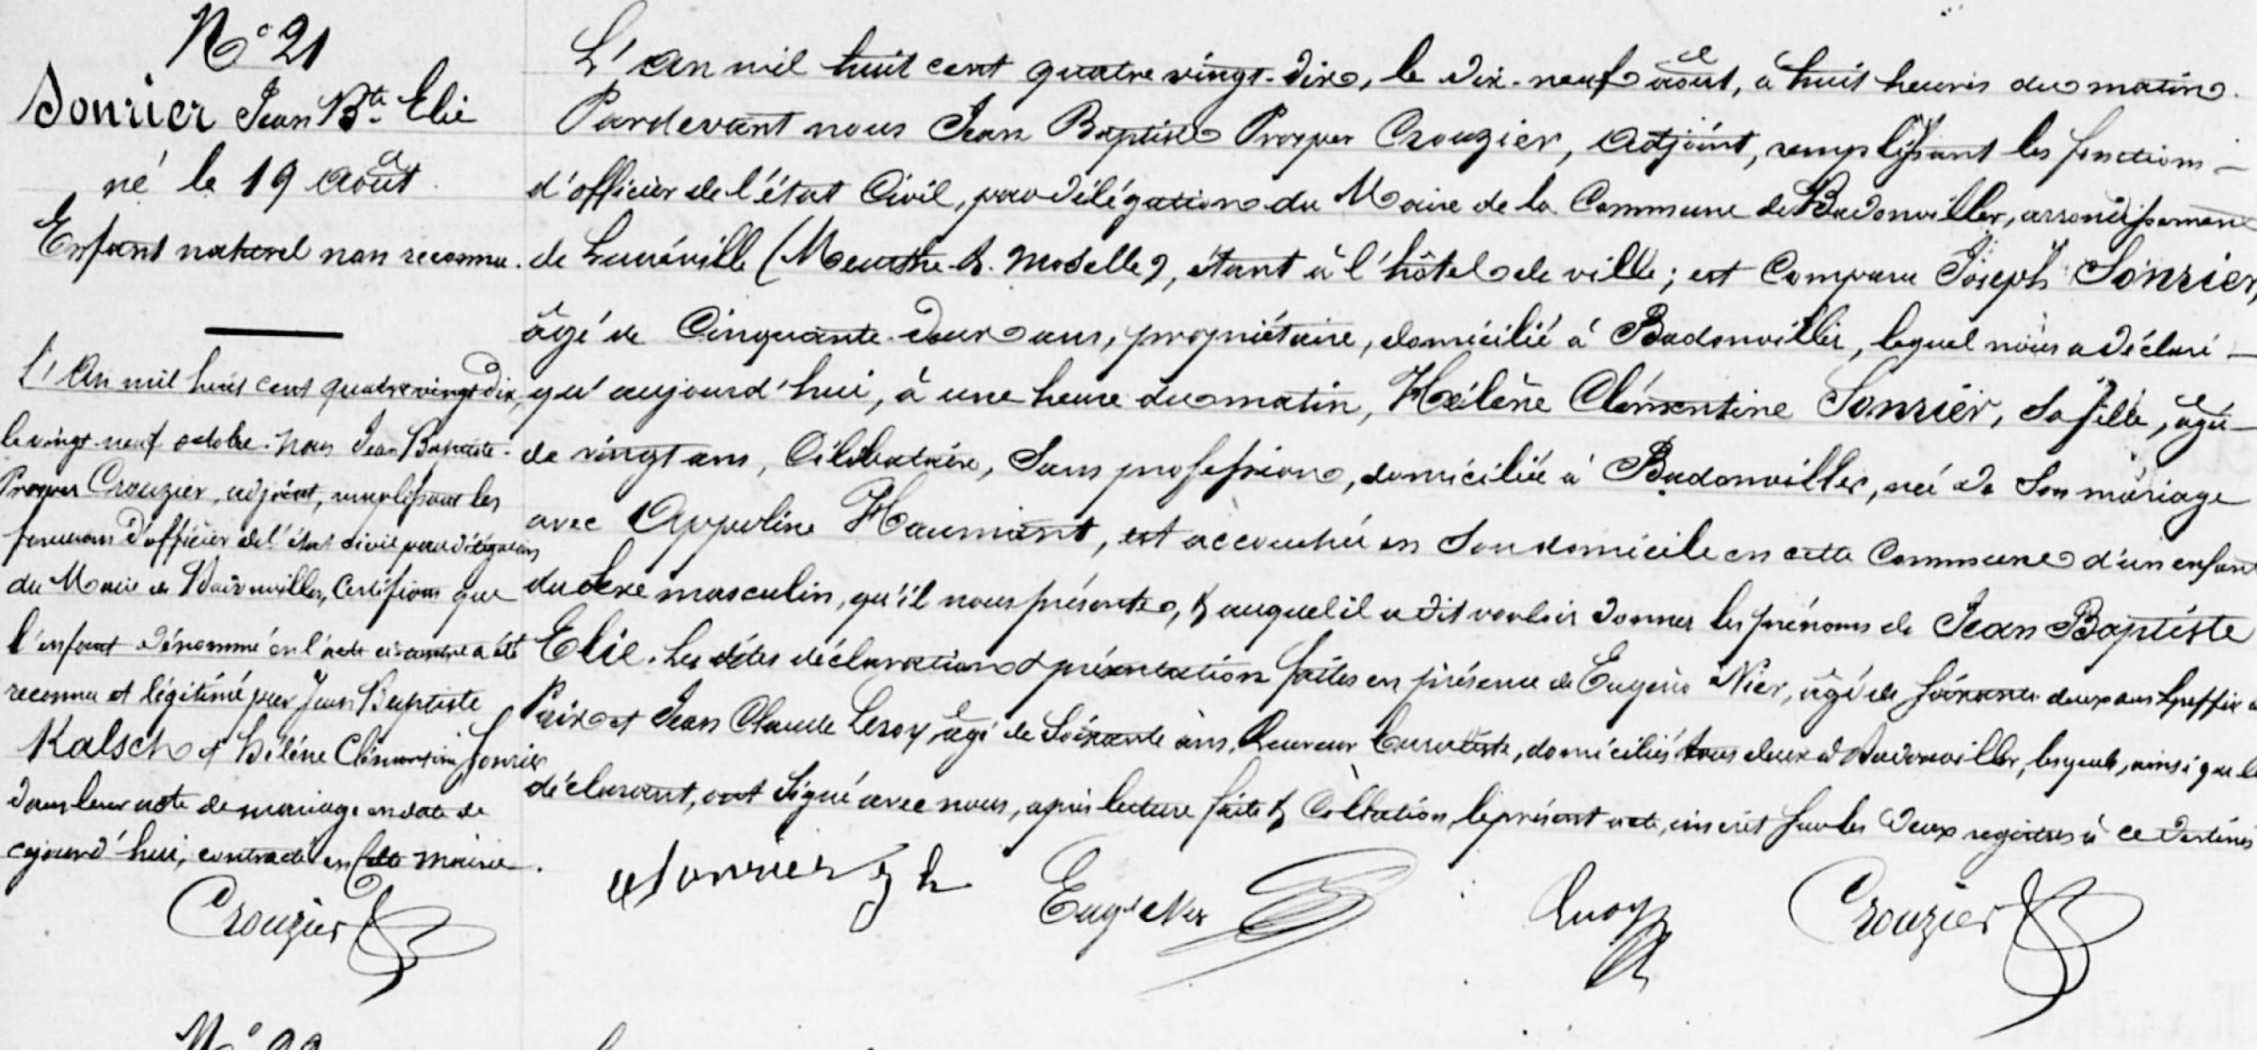 N° 21
Sonrier Jean Bte Elie
né le 19 août.
Enfant naturel non reconnu.
L'An mil huit cent quatre vingt dix,
le vingt-neuf octobre. Nous Jean Baptiste
Prosper Crouzier, adjoint, remplissant les
fonctions d'officier de l'état civil par délégation
du Maire de Badonviller, Certifions que
l'enfant dénommé en l'acte ci-contre a été
reconnu et légitimé par Jean Baptiste
Kalsch et Hélène Clémentine Sonrier
dans leur acte de mariage en date de
cejourd'hui, contracté en cette mairie.
Crouzier
L'an mil huit cent quatre vingt-dix, le dix-neuf août, à huit heures du matin.
Pardevant nous Jean Baptiste Prosper Crouzier, adjoint, remplissant les fonctions
d'officier de l'état Civil, par délégation du Maire de la Commune de Badonviller, arrondissement
de Lunéville (Meurthe-&-Moselle), étant à l'hôtel de ville; est Comparu Joseph Sonrier,
âgé de Cinquante-deux ans, propriétaire, domicilié à Badonviller, lequel nous a déclaré
qu'aujourd'hui, à une heure du matin, Hélène Clémentine Sonrier, sa fille, âgée
de vingt ans, Célibataire, Sans profession, domiciliée à Badonviller, née de son mariage
avec Appoline Haumant, est accouchée en son domicile en cette Commune d'un enfant
du sexe masculin, qu'il nous présente, & auquel il a dit vouloir donner les prénoms de Jean Baptiste
Elie. Les dites déclaration & présentation faites en présence de Eugène Nier, âgé de soixante deux ans Greffier de
Paix et Jean Claude Leroy, âgé de Soixante ans, domiciliés tous deux à Badonviller, lesquels, ainsi que le
déclarant, ont signé avec nous, après lecture faite & Collation, le présent acte, inscrit sur les deux registres à ce destinés
Sonrier Jh Eugne Nier Leroy Crouzier